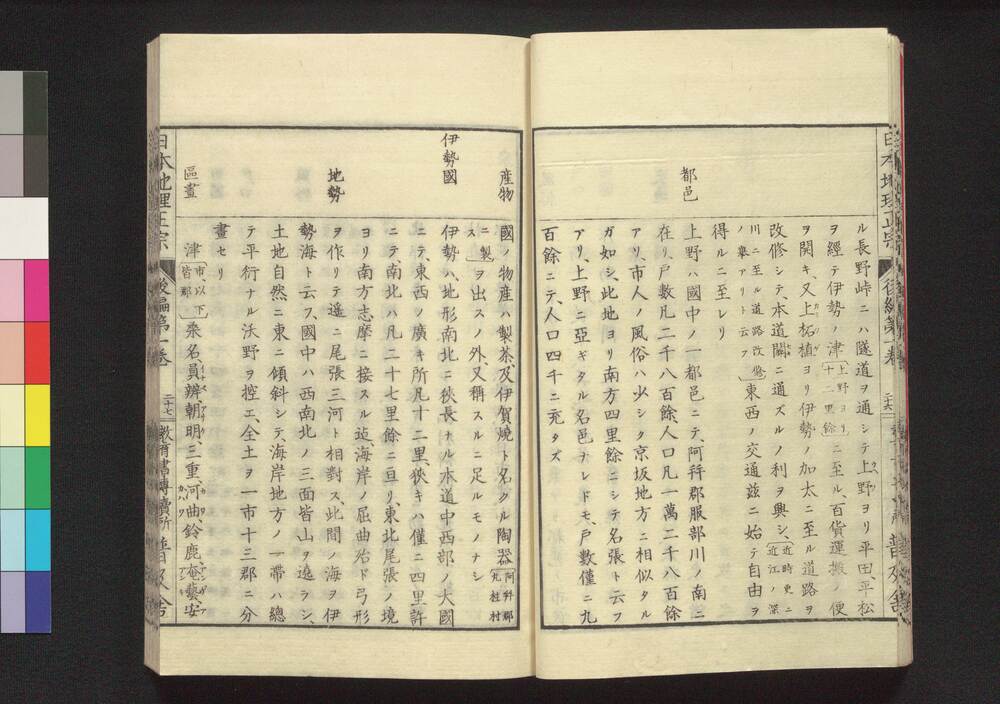 日本地理正宗
後編第一卷
二十六
普及舍
ル長野峠ニハ隧道ヲ通シテ上野ヨリ平田、平松
ヲ經テ伊勢ノ津〔上野ヨリ十二里餘〕ニ至ル、百貨運搬ノ便
ヲ開キ、又上柘植ヨリ伊勢ノ加太ニ至ル道路ヲ
改修シテ、本道關ニ通ズルノ利ヲ興シ、〔近時更ニ近江ノ深
川ニ至ル道路改修ノ擧アリト云フ〕東西ノ交通茲ニ始テ自由ヲ
得ルニ至レリ
都邑
上野ハ國中ノ一都邑ニテ、阿拜郡服部川ノ南ニ
在リ、戸數凡二千八百餘、人口凡一萬二千八百餘
アリ、市人ノ風俗ハ少シク京坂地方ニ相似タル
ガ如シ、此地ヨリ南方四里餘ニシテ名張ト云フ
アリ、上野ニ亞ギタル名邑ナレドモ、戸數僅ニ九
百餘ニテ、人口四千ニ充タズ
産物
國ノ物産ハ製茶、及伊賀燒ト名クル陶器〔阿拜郡丸柱村
ニ製ス〕ヲ出スノ外、又稱スルニ足ルモノナシ
伊勢國
伊勢ハ、地形南北ニ狹長ナル本道中西部ノ大國
ニテ、東西ノ廣キ所凡十二里、狹キハ僅ニ四里許
ニテ、南北ハ凡二十七里餘ニ亘リ、東北尾張ノ境
ヨリ南方志摩ニ接スル迠、海岸ノ屈曲殆ド弓形
地勢
ヲ作リテ遙ニ尾張三河ト相對ス、此間ノ海ヲ伊
勢海ト云フ、國中ハ西南北ノ三面皆山ヲ遶ラシ、
土地自然ニ東ニ傾斜シテ、海岸地方ノ一帶ハ總
テ平衍ナル沃野ヲ控エ、全土ヲ一市十三郡ニ分
畫セリ
區畫
津〔市以下皆郡〕桑名、員辨、朝明、三重、河曲、鈴鹿、奄藝、安
日本地理正宗
後編第一卷
二十七
教育書專賣所
普及舍